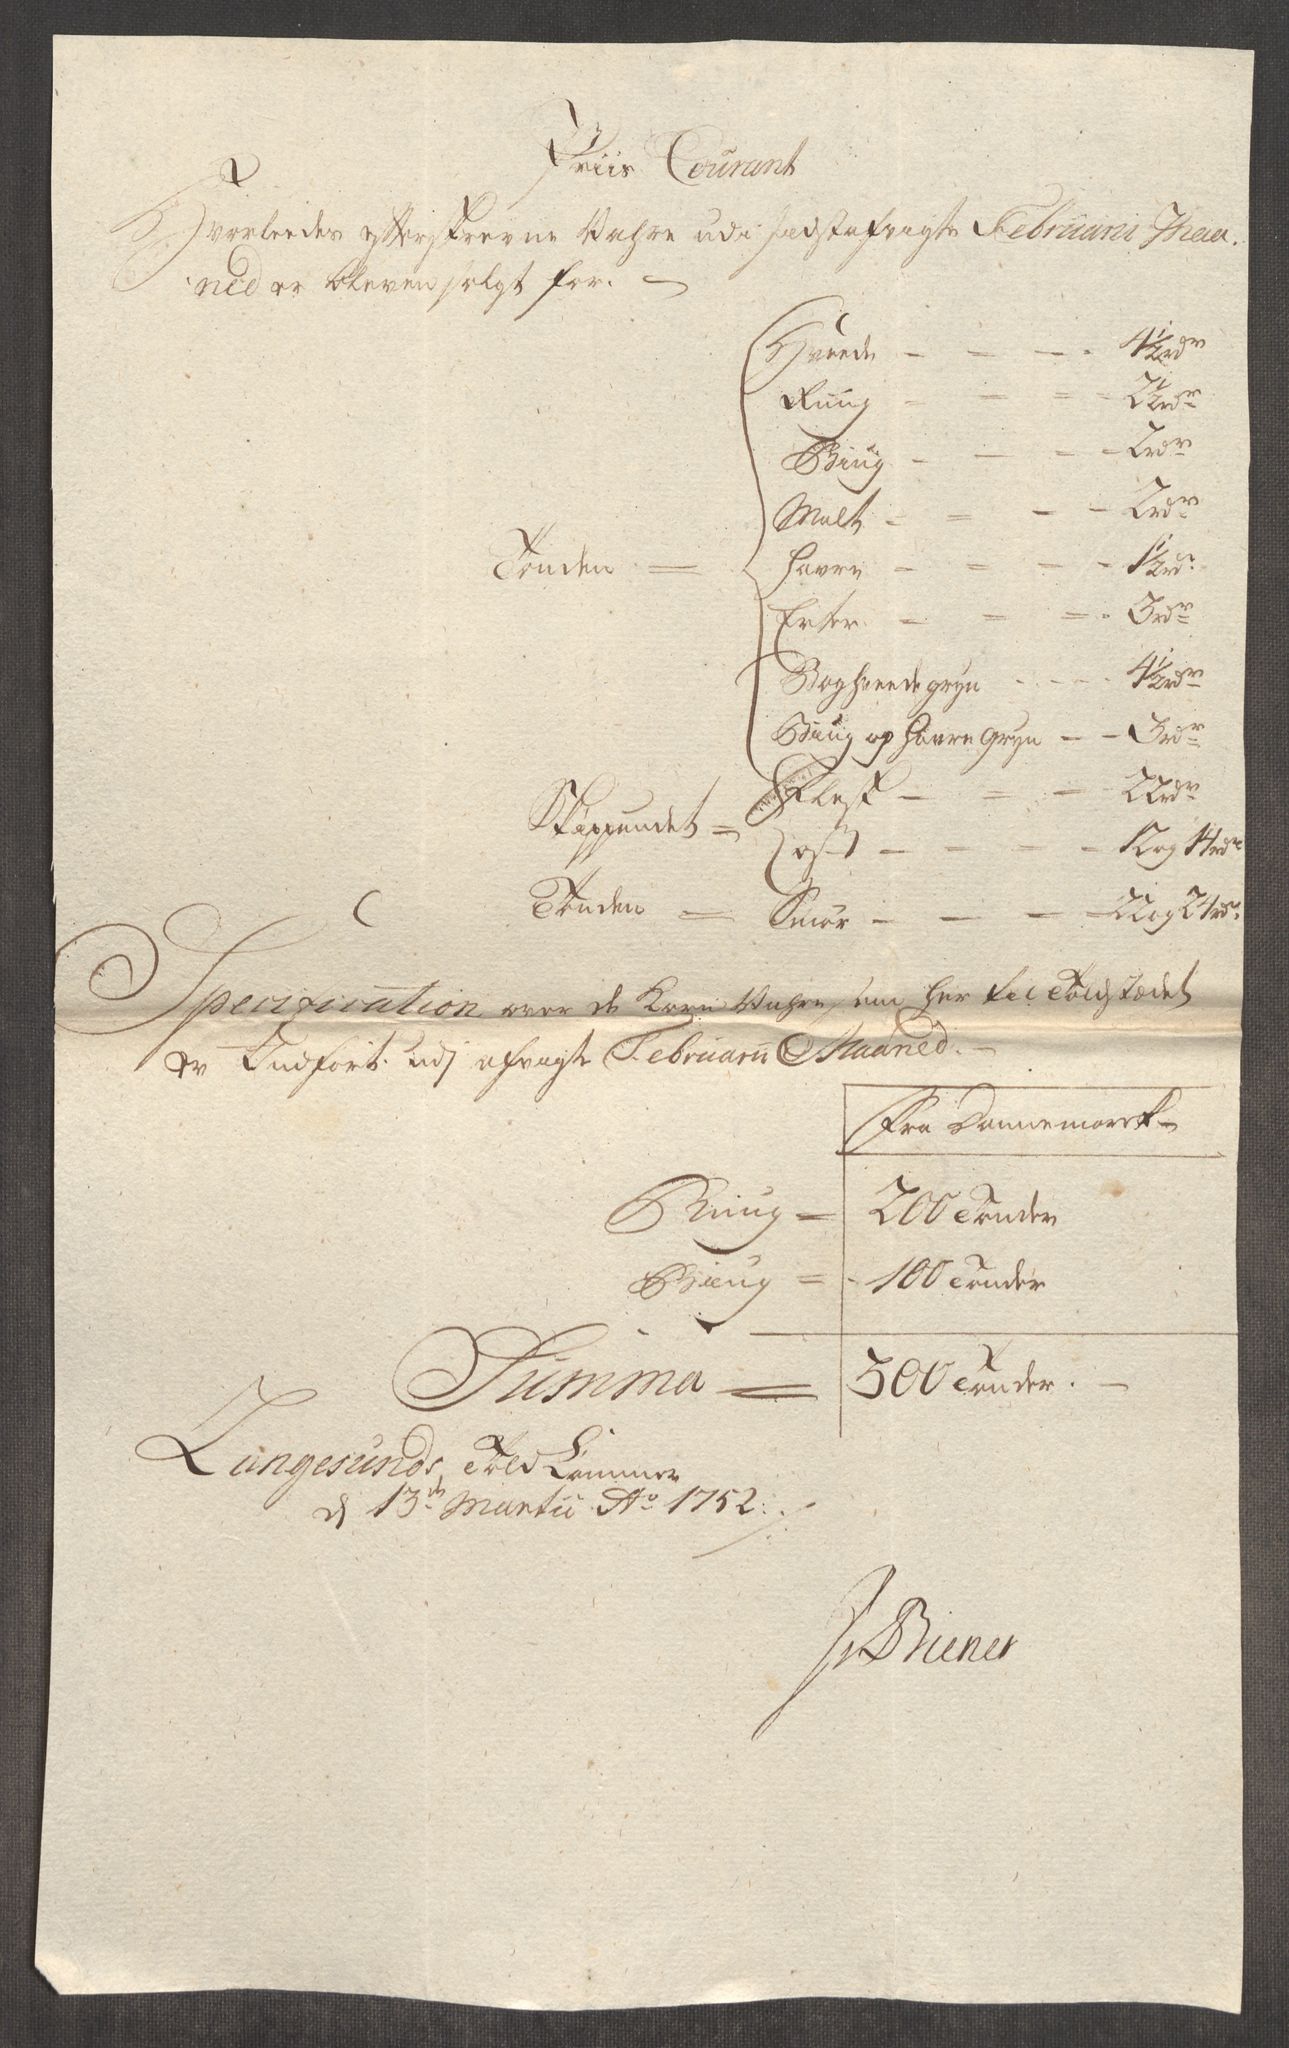 Priis Courant
Hvorleedes efterskrevne Vahre udi sidst afvigte Februarii Maa-
ned er bleven solgt for. —
Hveede — — — 4½ rdr
Ruug — — — 2½ rdr
Biug — — — 2 rdr
Malt — — — 2 rdr
Tønden = Havre — — — 1½ rdr
Erter — — — 3 rdr
Boghveede gryn — — — 4½ rdr
Biug og Havre Gryn — — 3 rdr
Skippundet = Flesk — — — 22 rdr
Ost — — — 12 og 14 rdr
Tønden = Smør — — — 22 og 24 rdr
Specification over de Korn Vahre, som her til Toldstædet
er Indført udj afvigte Februarii Maaned. —
Fra Dannemarck
Ruug = 200 Tønder
Biug = 100 Tønder
Summa = 300 Tønder. —
Langesunds Told Kammer
d 13de Martii Ao 1752.
Biener